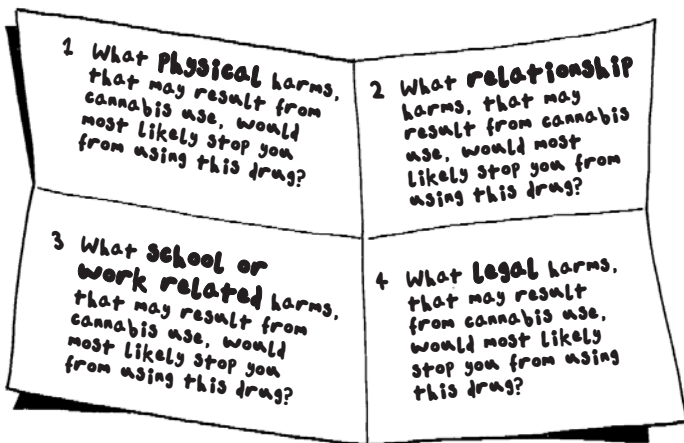 1 What physical harms,
that may result from
cannabis use, would
most likely stop you
from using this drug?
2 What relationship
harms, that may
result from cannabis
use, would most
likely stop you from
using this drug?
3 What school or
work related harms,
that may result from
cannabis use, would
most likely stop you
from using this drug?
4 What legal harms,
that may result
from cannabis use,
would most likely
stop you from using
this drug?